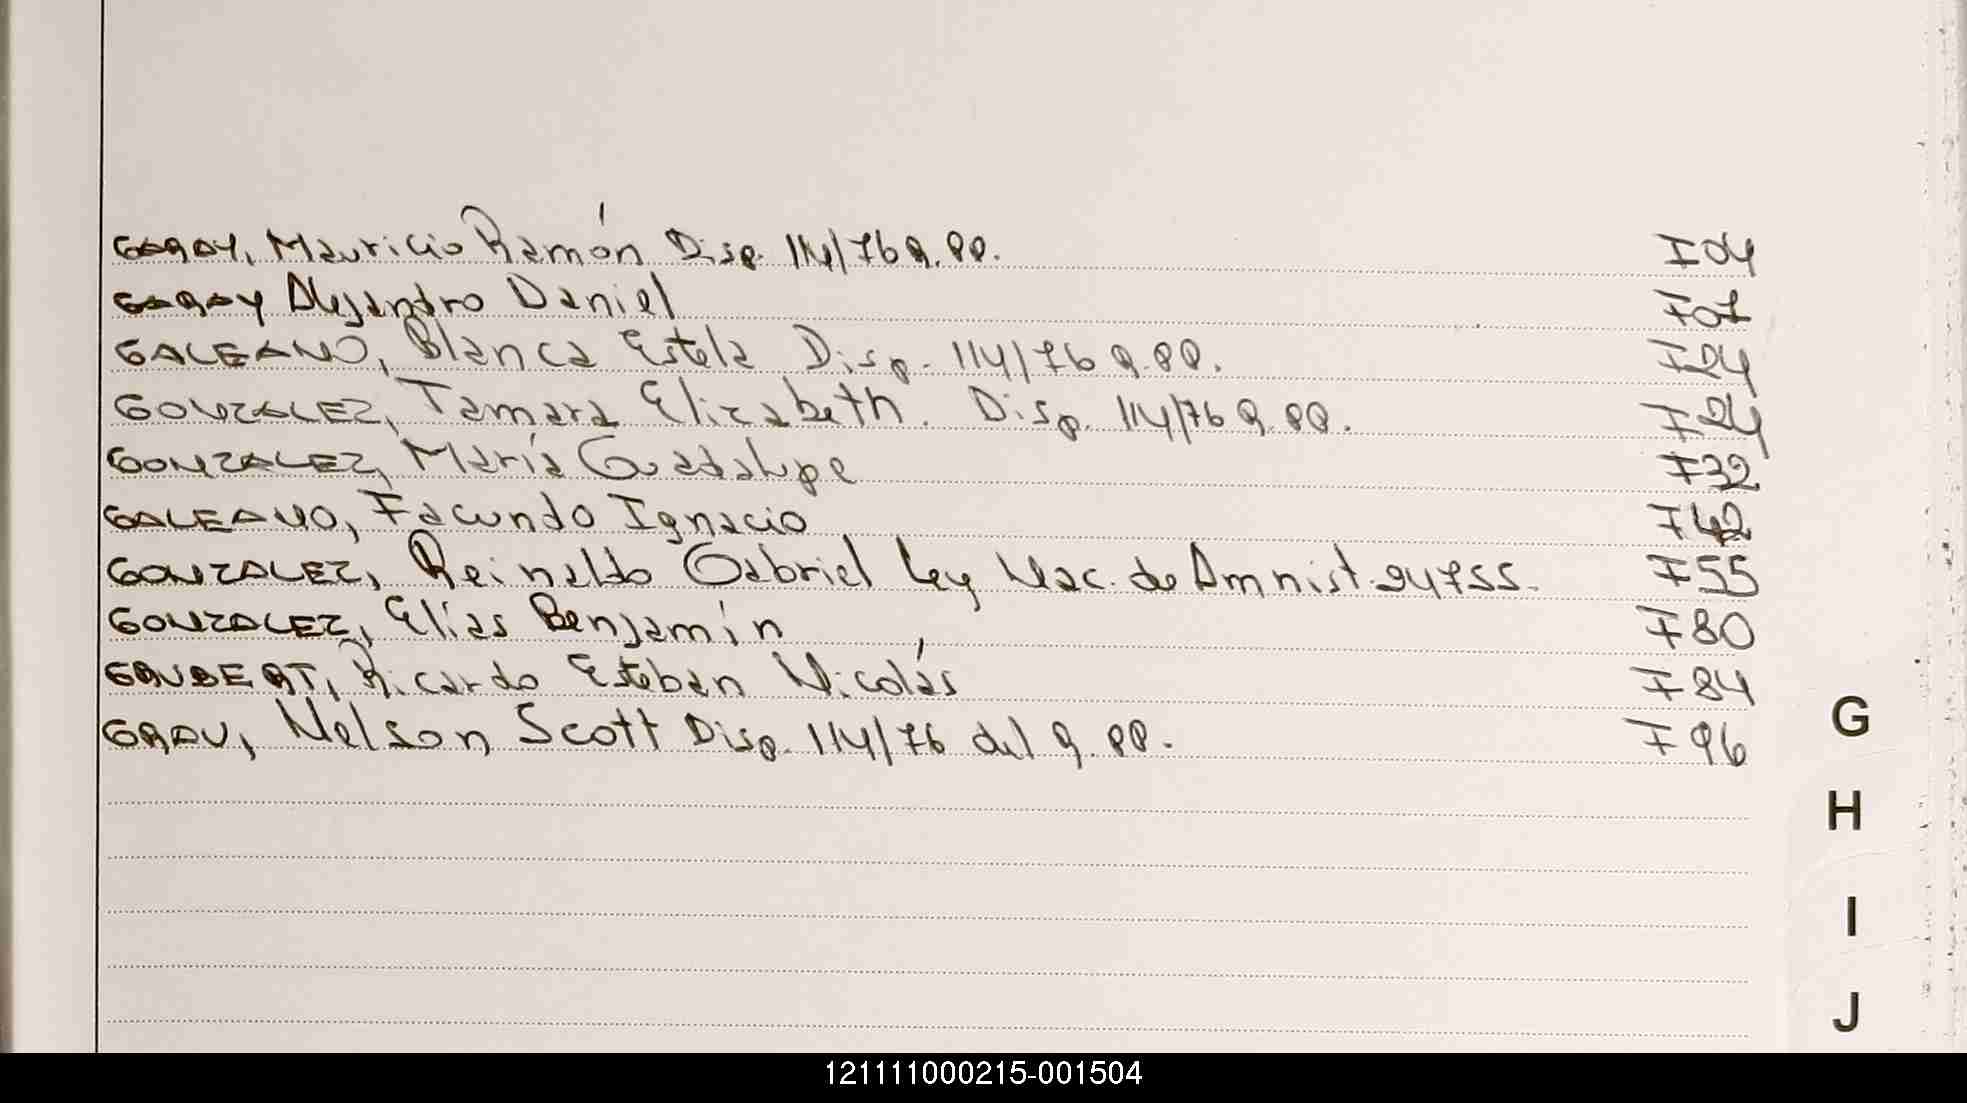 GARAY, Mauricio Ramón Disp. 114/76 R.PP. F 04
GARAY Alejandro Daniel F 07
GALEANO, Blanca Estela Disp. 114/76 R.PP. F 24
GONZALEZ, Tamara Elizabeth. Disp. 114/76 R.PP. F 24
GONZALEZ, María Guadalupe F 32
GALEANO, Facundo Ignacio F 42
GONZALEZ, Reinaldo Gabriel Ley Nac. de Amnist. 24755. F 55
GONZALEZ, Elías Benjamín F 80
GAUBERT, Ricardo Esteban Nicolás F 84
GRAU, Nelson Scott Disp. 114/76 del R.PP. F 96
G
H
I
J
121111000215-001504